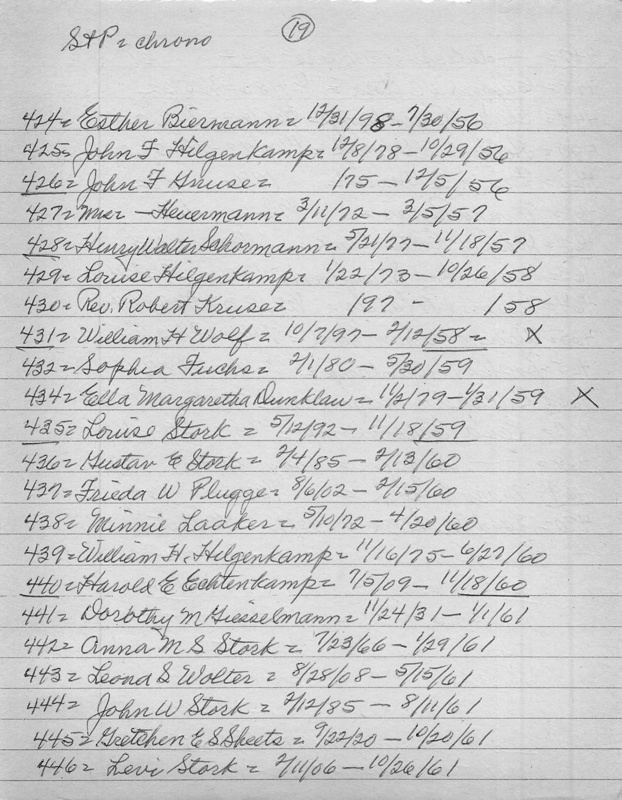 19
S+P = chrono
424 = Esther Biermann = 12/31/98 - 7/30/56
425 = John F Hilgenkamp = 12/8/78 - 10/29/56
426 = John F Kruse = /75 - 12/5/56
427 = Mrs - Heuermann = 3/11/72 - 3/5/57
428 = Henry Walter Schormann = 5/21/77 - 11/18/57
429 = Louise Hilgenkamp = 1/22/73 - 10/26/58
430 = Rev. Robert Kruse = /97 - /58
431 = William H Wolf = 10/7/97 - 2/12/58 = X
432 = Sophia Fuchs = 2/1/80 - 5/30/59
434 = Ella Margaretha Dunklau = 11/2/79 - 1/31/59 X
435 = Louise Stork = 5/12/92 - 11/18/59
436 = Gustav E Stork = 2/4/85 - 2/13/60
437 = Frieda W Plugge = 8/6/02 - 2/15/60
438 = Minnie Laaker = 5/10/72 - 4/20/60
439 = William H. Hilgenkamp = 11/16/75 - 6/27/60
440 = Harold E Echtenkamp = 7/5/09 - 11/18/60
441 = Dorothy M Giesselmann = 11/24/31 - 1/1/61
442 = Anna M S Stork = 7/23/66 - 1/29/61
443 = Leona S Wolter = 8/28/08 - 5/15/61
444 = John W Stork = 2/12/85 - 8/11/61
445 = Gretchen E S Sheets = 9/22/20 - 10/20/61
446 = Levi Stork = 2/11/06 - 10/26/61